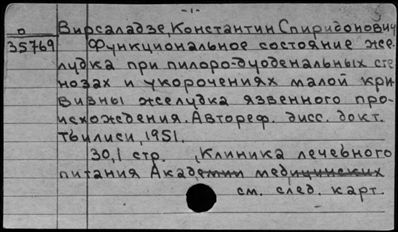 -1-
п Вирсаладзе, Константин Спиридонович
35769 Функциональное состояние же-
лудка при пилоро-дуоденальных сте
нозах и укорочениях малой кри
визны желудка язвенного про-
исхождения. Автореф. дисс. докт.
Тбилиси, 1951.
30,1 стр. , Клиника лечебного
питания Академии медицинских
см. след. карт.